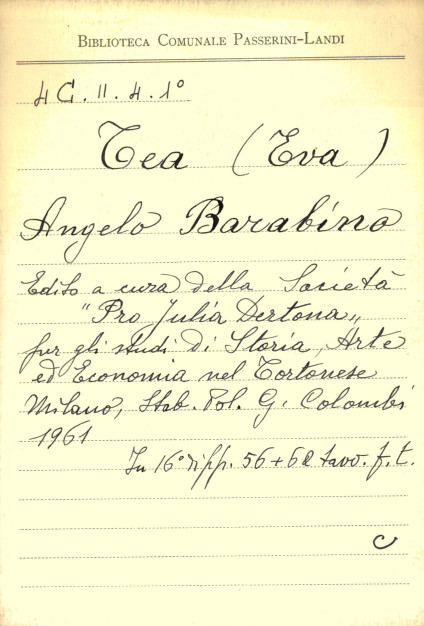 BIBLIOTECA COMUNALE PASSERINI-LANDI
4 C. II. 4. 1°
Tea (Eva)
Angelo Barabino
Edito a cura della Società
"Pro Julia Dertona„
per gli studi di Storia, Arte
ed Economia nel Tortonese
Milano, Stab. Pol. G. Colombi
1961
In 16° di pp. 56 + tavv. f. t.
C